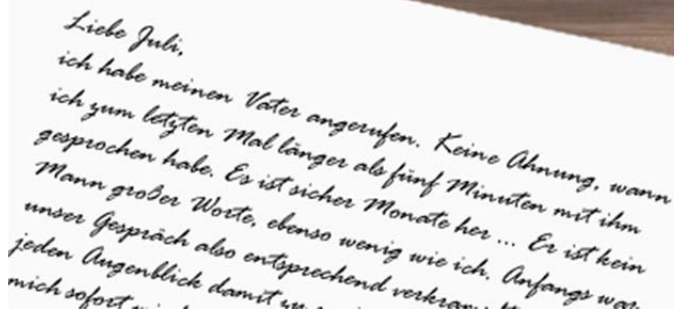 Liebe Juli,
ich habe meinen Vater angerufen. Keine Ahnung, wann
ich zum letzten Mal länger als fünf Minuten mit ihm
gesprochen habe. Es ist sicher Monate her ... Er ist kein
Mann großer Worte, ebenso wenig wie ich. Anfangs war
unser Gespräch also entsprechend
jeden Augenblick damit
mich sofort